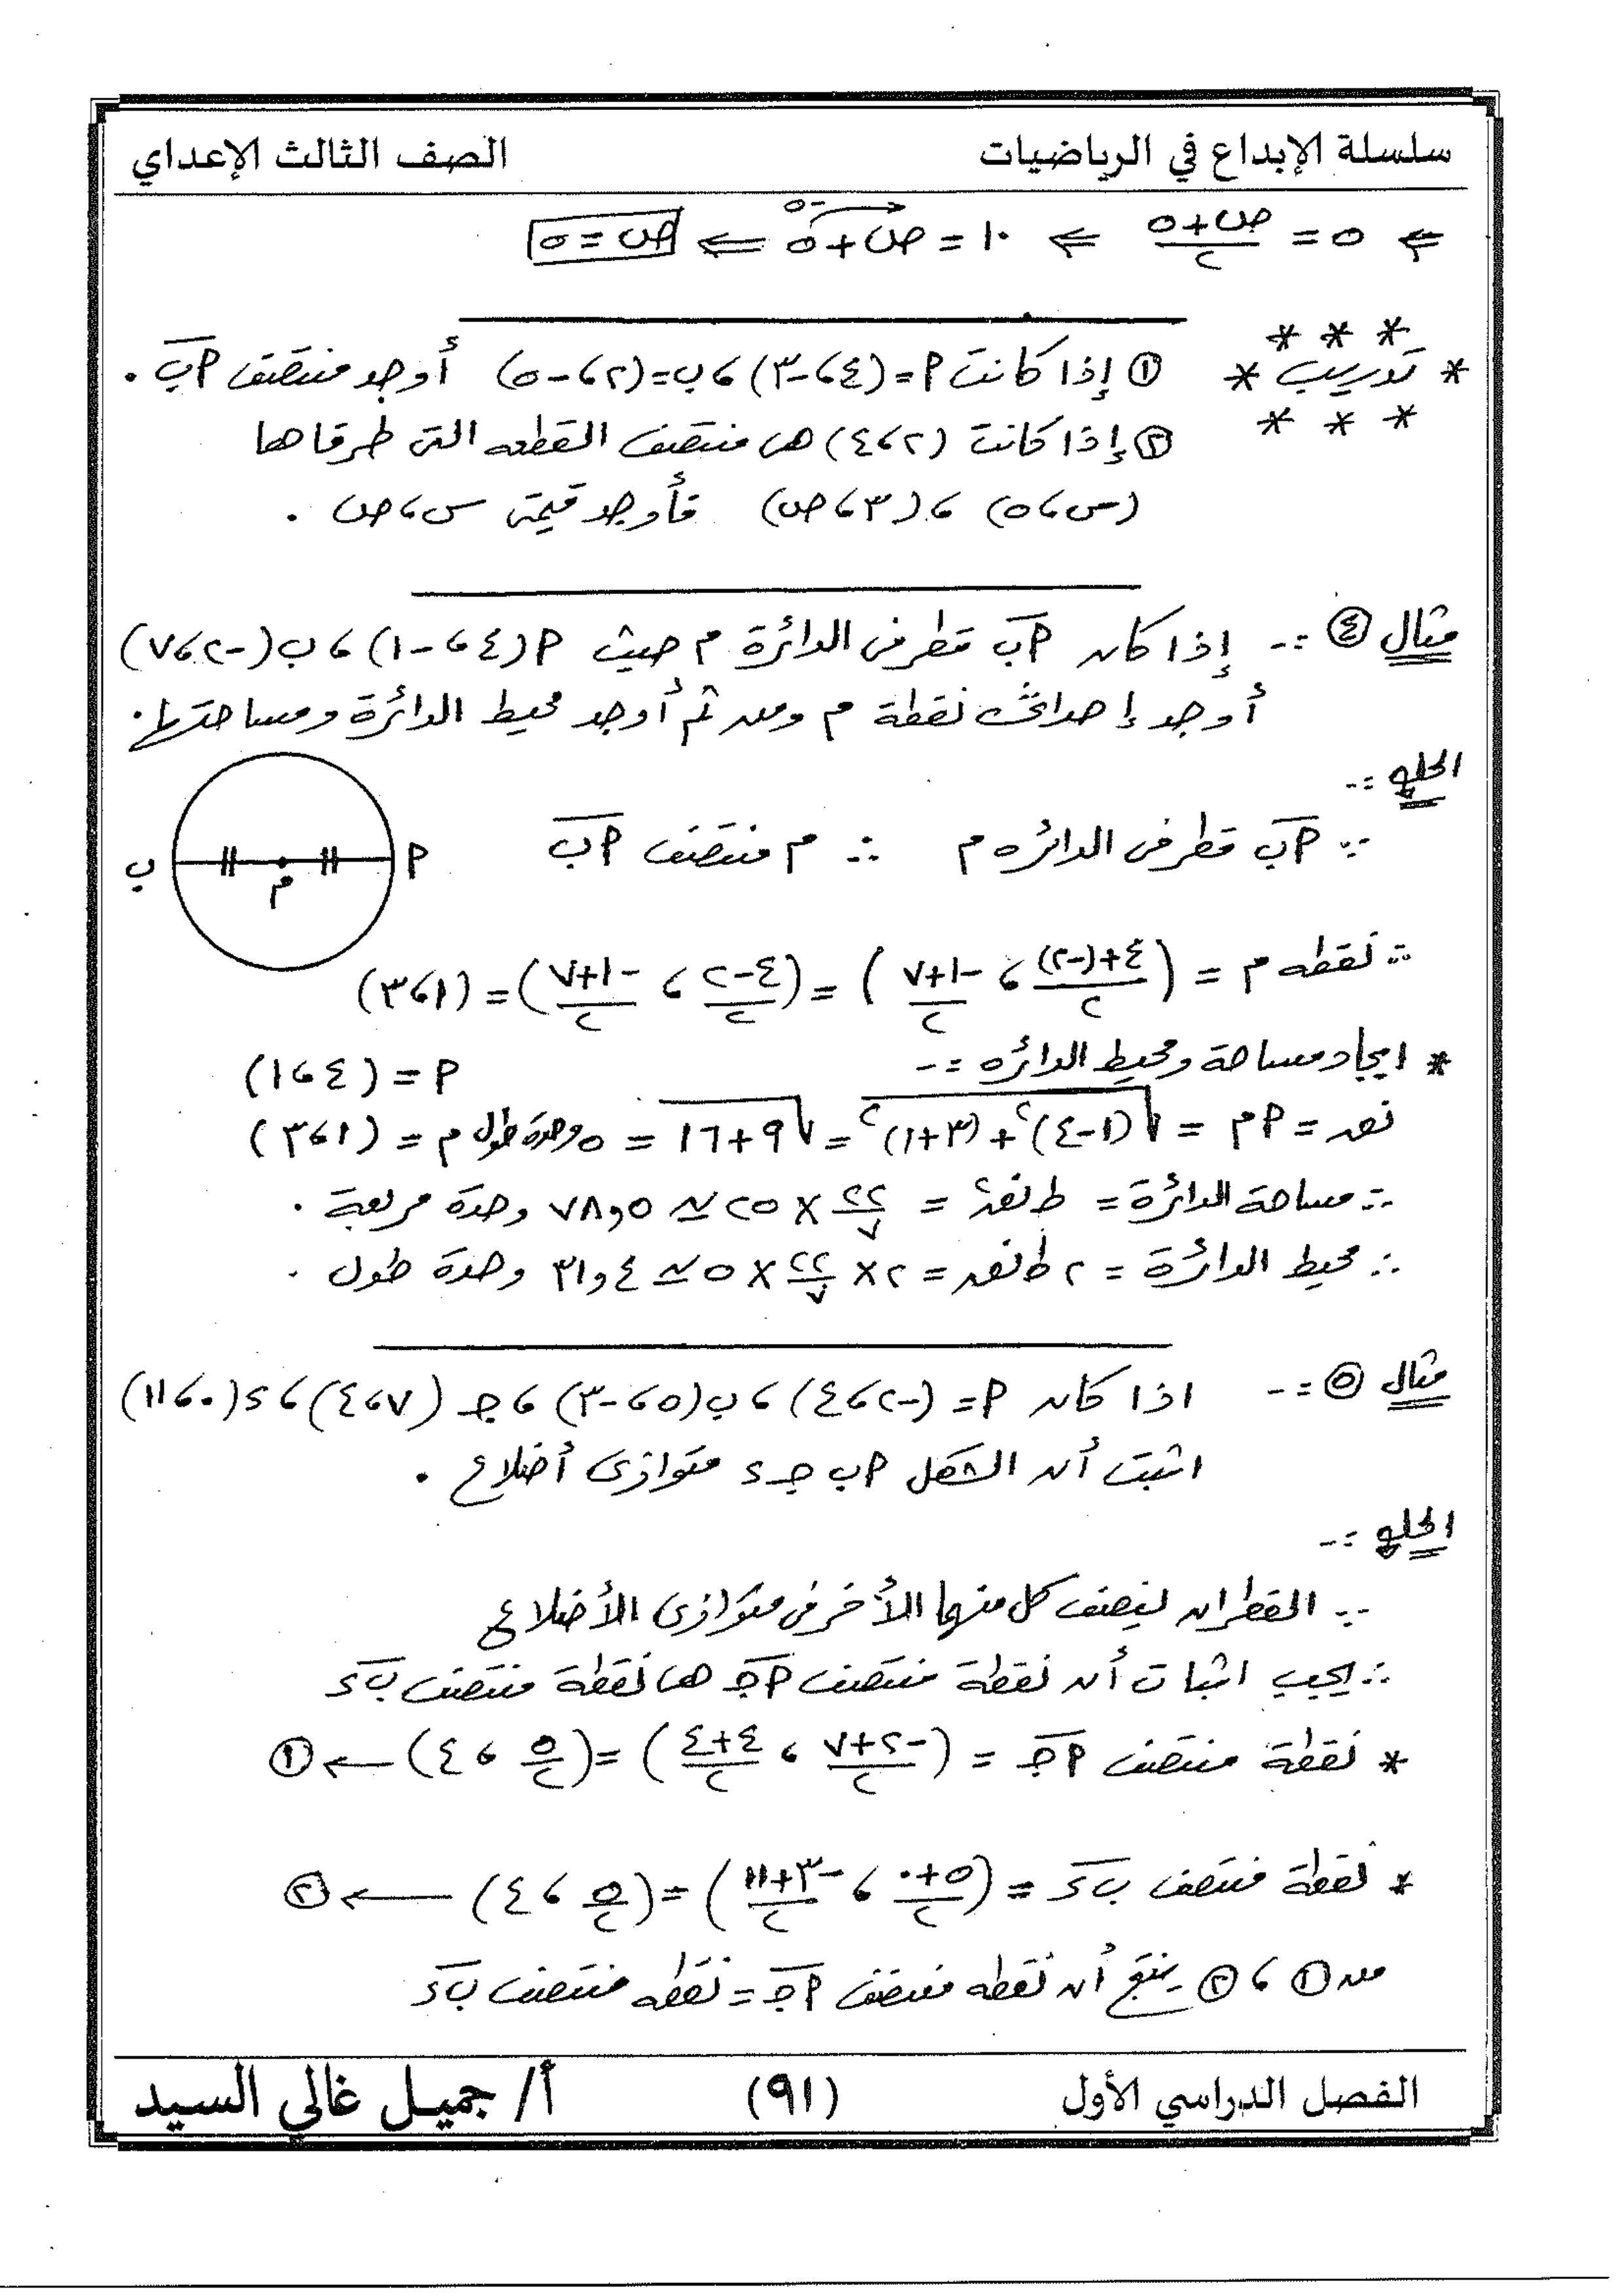 سلسلة الإبداع في الرياضيات الصف الثالث الإعدادي
⇐ ٥ = (ص + ٥)/٢ ⇐ ١٠ = ص + ٥ ⇐ ص = ٥
* تدريب * ① إذا كانت أ = (٤ ، -٣) ، ب = (٢ ، -٥) أوجد منتصف أب .
② إذا كانت (٢ ، ٤) هى منتصف القطعه التى طرفاها
(س ، ٥) ، (٣ ، ص) فأوجد قيمة س ، ص .
مثال ④ :- إذا كان أب قطر فى الدائرة م حيث أ (٤ ، -١) ، ب (-٢ ، ٧)
أوجد إحداثى نقطة م ومن ثم أوجد محيط الدائرة ومساحتها .
الحل :-
∵ أب قطر فى الدائره م ∴ م منتصف أب
أ م ب
∴ نقطه م = ((٤+(-٢))/٢ ، (-١+٧)/٢) = ((٤-٢)/٢ ، (-١+٧)/٢) = (١ ، ٣)
* ايجاد مساحة ومحيط الدائره :- أ = (٤ ، ١)
نق = أم = √((١-٤)² + (٣+١)²) = √(٩+١٦) = ٥ وحدة طول م = (١ ، ٣)
∴ مساحة الدائرة = ط نق² = ٢٢/٧ × ٢٥ ≃ ٧٨,٥ وحدة مربعة .
∴ محيط الدائرة = ٢ ط نق = ٢ × ٢٢/٧ × ٥ ≃ ٣١,٤ وحدة طول .
مثال ⑤ :- اذا كان أ = (-٢ ، ٤) ، ب (٥ ، -٣) ، جـ (٧ ، ٤) ، د (٠ ، ١١)
اثبت أن الشكل أ ب جـ د متوازى أضلاع .
الحل :-
∵ القطران ينصف كل منهما الأخر فى متوازى الأضلاع
∴ يجب اثبات أن نقطة منتصف أجـ هى نقطة منتصف بد
* نقطة منتصف أجـ = ((-٢+٧)/٢ ، (٤+٤)/٢) = (٥/٢ ، ٤) ← ①
* نقطة منتصف بد = ((٥+٠)/٢ ، (-٣+١١)/٢) = (٥/٢ ، ٤) ← ②
من ① ، ② ينتج أن نقطه منتصف أجـ = نقطه منتصف بد
الفصل الدراسي الأول (٩١) أ/ جميل غالي السيد